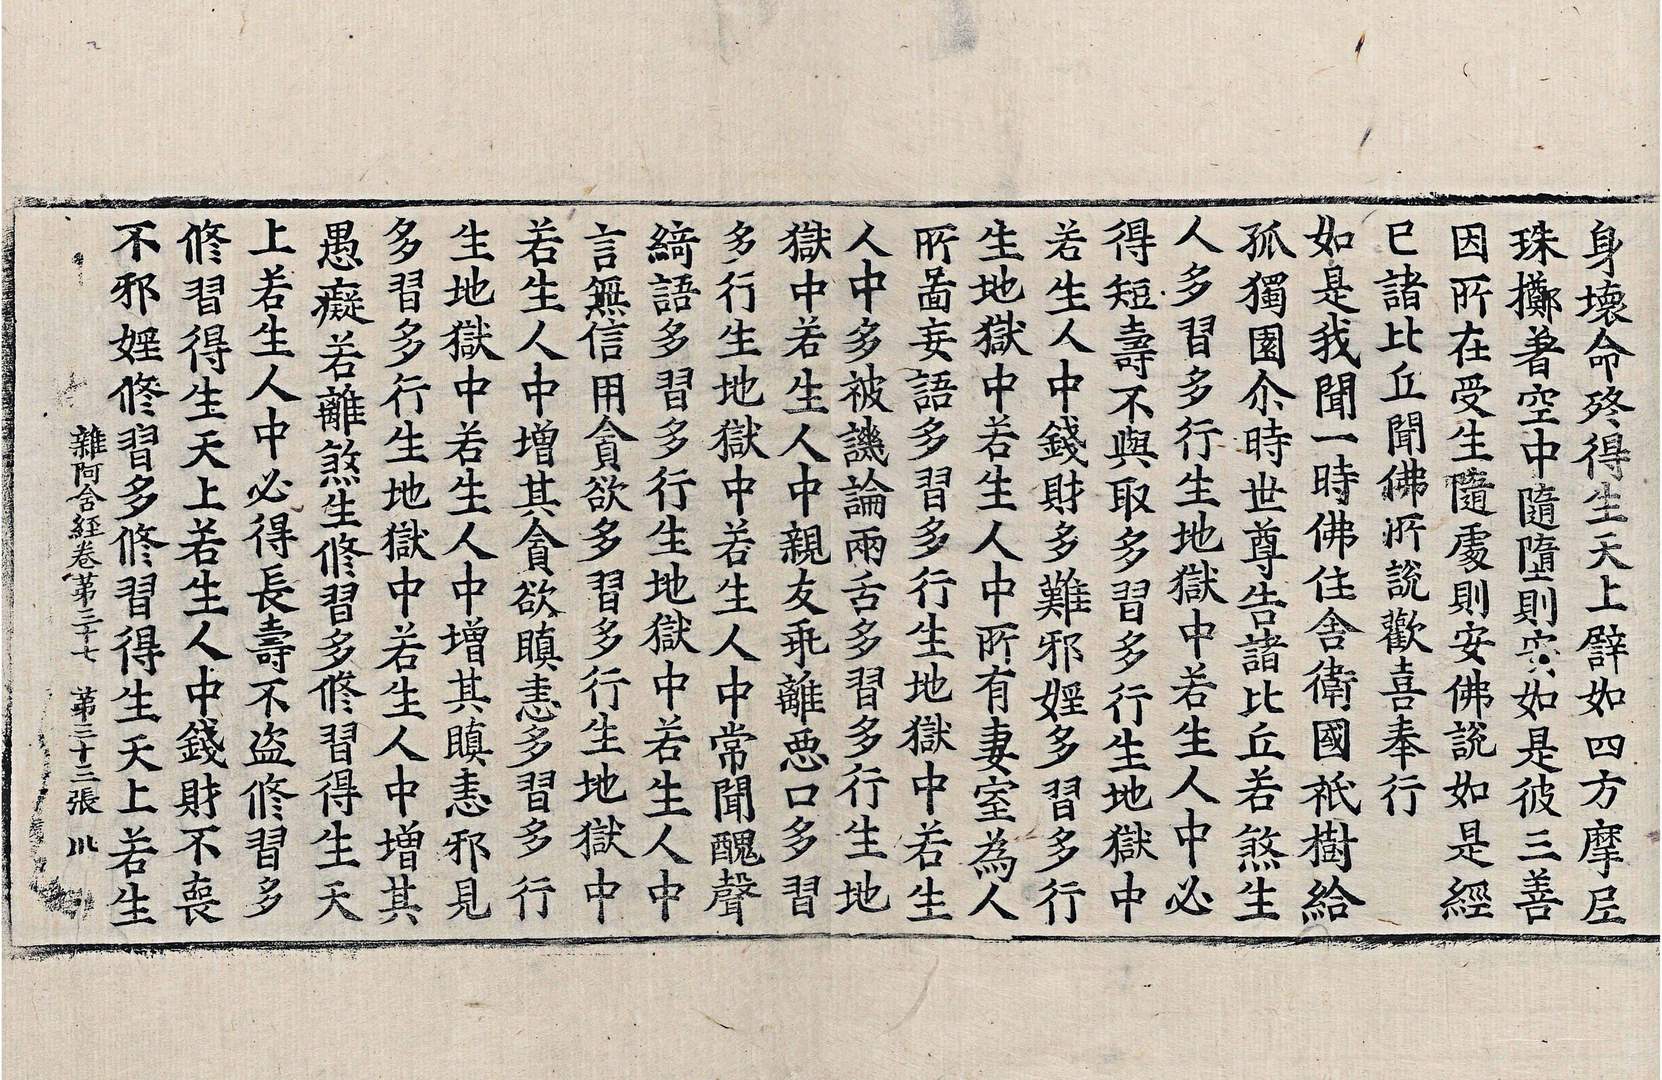 身壞命終得生天上譬如四方摩尼
珠擲著空中隨墮則安如是彼三善
因所在受生隨處則安佛說如是經
已諸比丘聞佛所說歡喜奉行
如是我聞一時佛住舍衛國祇樹給
孤獨園尒時世尊告諸比丘若煞生
人多習多行生地獄中若生人中必
得短壽不與取多習多行生地獄中
若生人中錢財多難邪婬多習多行
生地獄中若生人中所有妻室為人
所啚妄語多習多行生地獄中若生
人中多被譏論兩舌多習多行生地
獄中若生人中親友乖離惡口多習
多行生地獄中若生人中常聞醜聲
綺語多習多行生地獄中若生人中
言無信用貪欲多習多行生地獄中
若生人中增其貪欲瞋恚多習多行
生地獄中若生人中增其瞋恚邪見
多習多行生地獄中若生人中增其
愚癡若離煞生修習多修習得生天
上若生人中必得長壽不盜修習多
修習得生天上若生人中錢財不喪
不邪婬修習多修習得生天上若生
雜阿含經卷第三十七 第三十三張